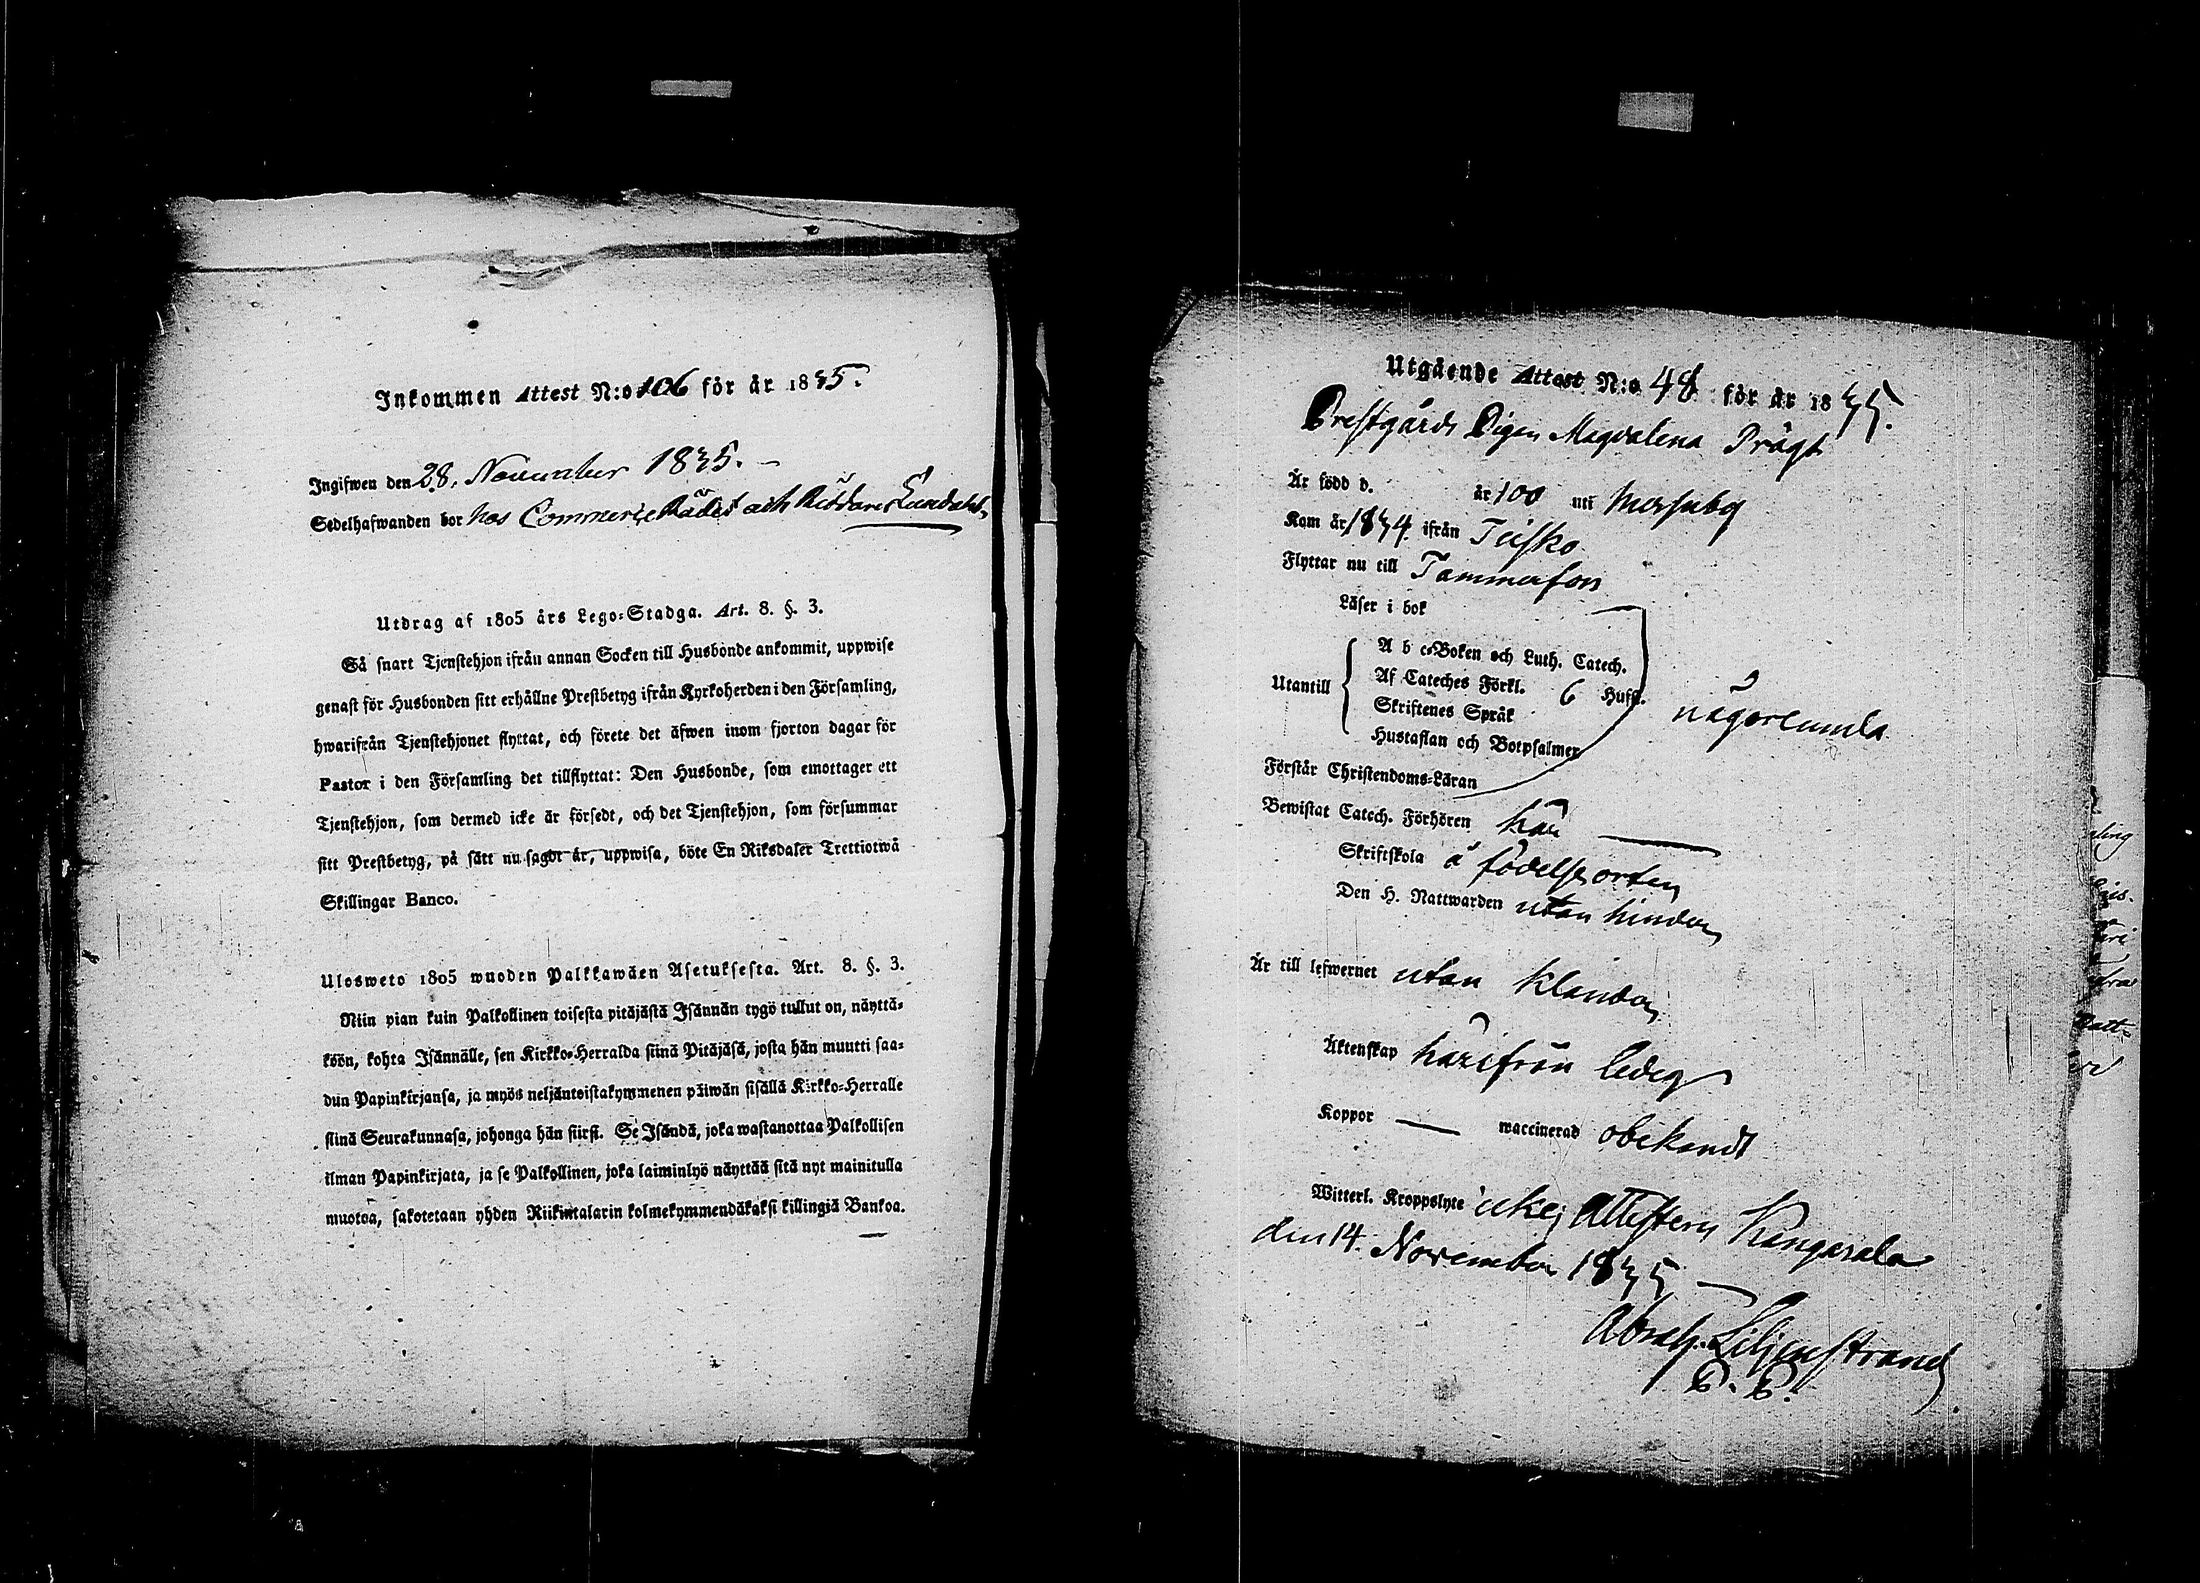 Inkommen Attest N:o 106 för år 1835.
Ingifwen den 28. November 1835. –
Sedelhafwanden bor hos Commerce Rådet och Riddaren Lundahl.
Utdrag af 1805 års Lego-Stadga. Art. 8. §. 3.
Så snart Tjenstehjon ifrån annan Socken till Husbonde ankommit, uppwise
genast för Husbonden sitt erhållne Prestbetyg ifrån Kyrkoherden i den Församling,
hwarifrån Tjenstehjonet flyttat, och förete det äfwen inom fjorton dagar för
Pastor i den Församling det tillflyttat: Den Husbonde, som emottager ett
Tjenstehjon, som dermed icke är försedt, och det Tjenstehjon, som försummar
sitt Prestbetyg, på sätt nu sagdt är, uppwisa, böte En Riksdaler Trettiotwå
Skillingar Banco.
Ulosweto 1805 wuoden Palkkawäen Asetuksesta. Art. 8. §. 3.
Niin pian kuin Palkollinen toisesta pitäjästä Isännän tygö tullut on, näyttä-
köön, kohta Isännälle, sen Kirkko-Herralda siinä Pitäjäsä, josta hän muutti saa-
dun Papinkirjansa, ja myös neljäntoistakymmenen päiwän sisällä Kirkko-Herralle
siinä Seurakunnasa, johonga hän siirsi. Se Isändä, joka wastanottaa Palkollisen
ilman Papinkirjata, ja se Palkollinen, joka laiminlyö näyttää sitä nyt mainitulla
muotoa, sakotetaan yhden Riikintalarin kolmekymmendäkaksi killingiä Bankoa.
Utgående Attest N:o 48 för år 1835.
Prestgårds Pigan Magdalena Prägt
Är född d. år 100 uti
Kom år 1834 ifrån Teisko
Flyttar nu till Tammerfors
Läser i bok
A b c-Boken och Luth. Catech.
Af Cateches Förkl. 6 Hufst.
Utantill
Skriftenes Språk
någorlunda
Hustaflan och Botpsalmer
Förstår Christendoms-Läran
Bewistat Catech. Förhören här
Skriftskola å födelseorten
Den H. Nattwarden utan hinder
Är till lefwernet utan klander
Äktenskap härifrån ledig
Koppor — waccinerad obekandt
Witterl. Kroppslyte icke; Attesterer Kangasala
den 14. November 1835 —
Abrah. Liljenstrand